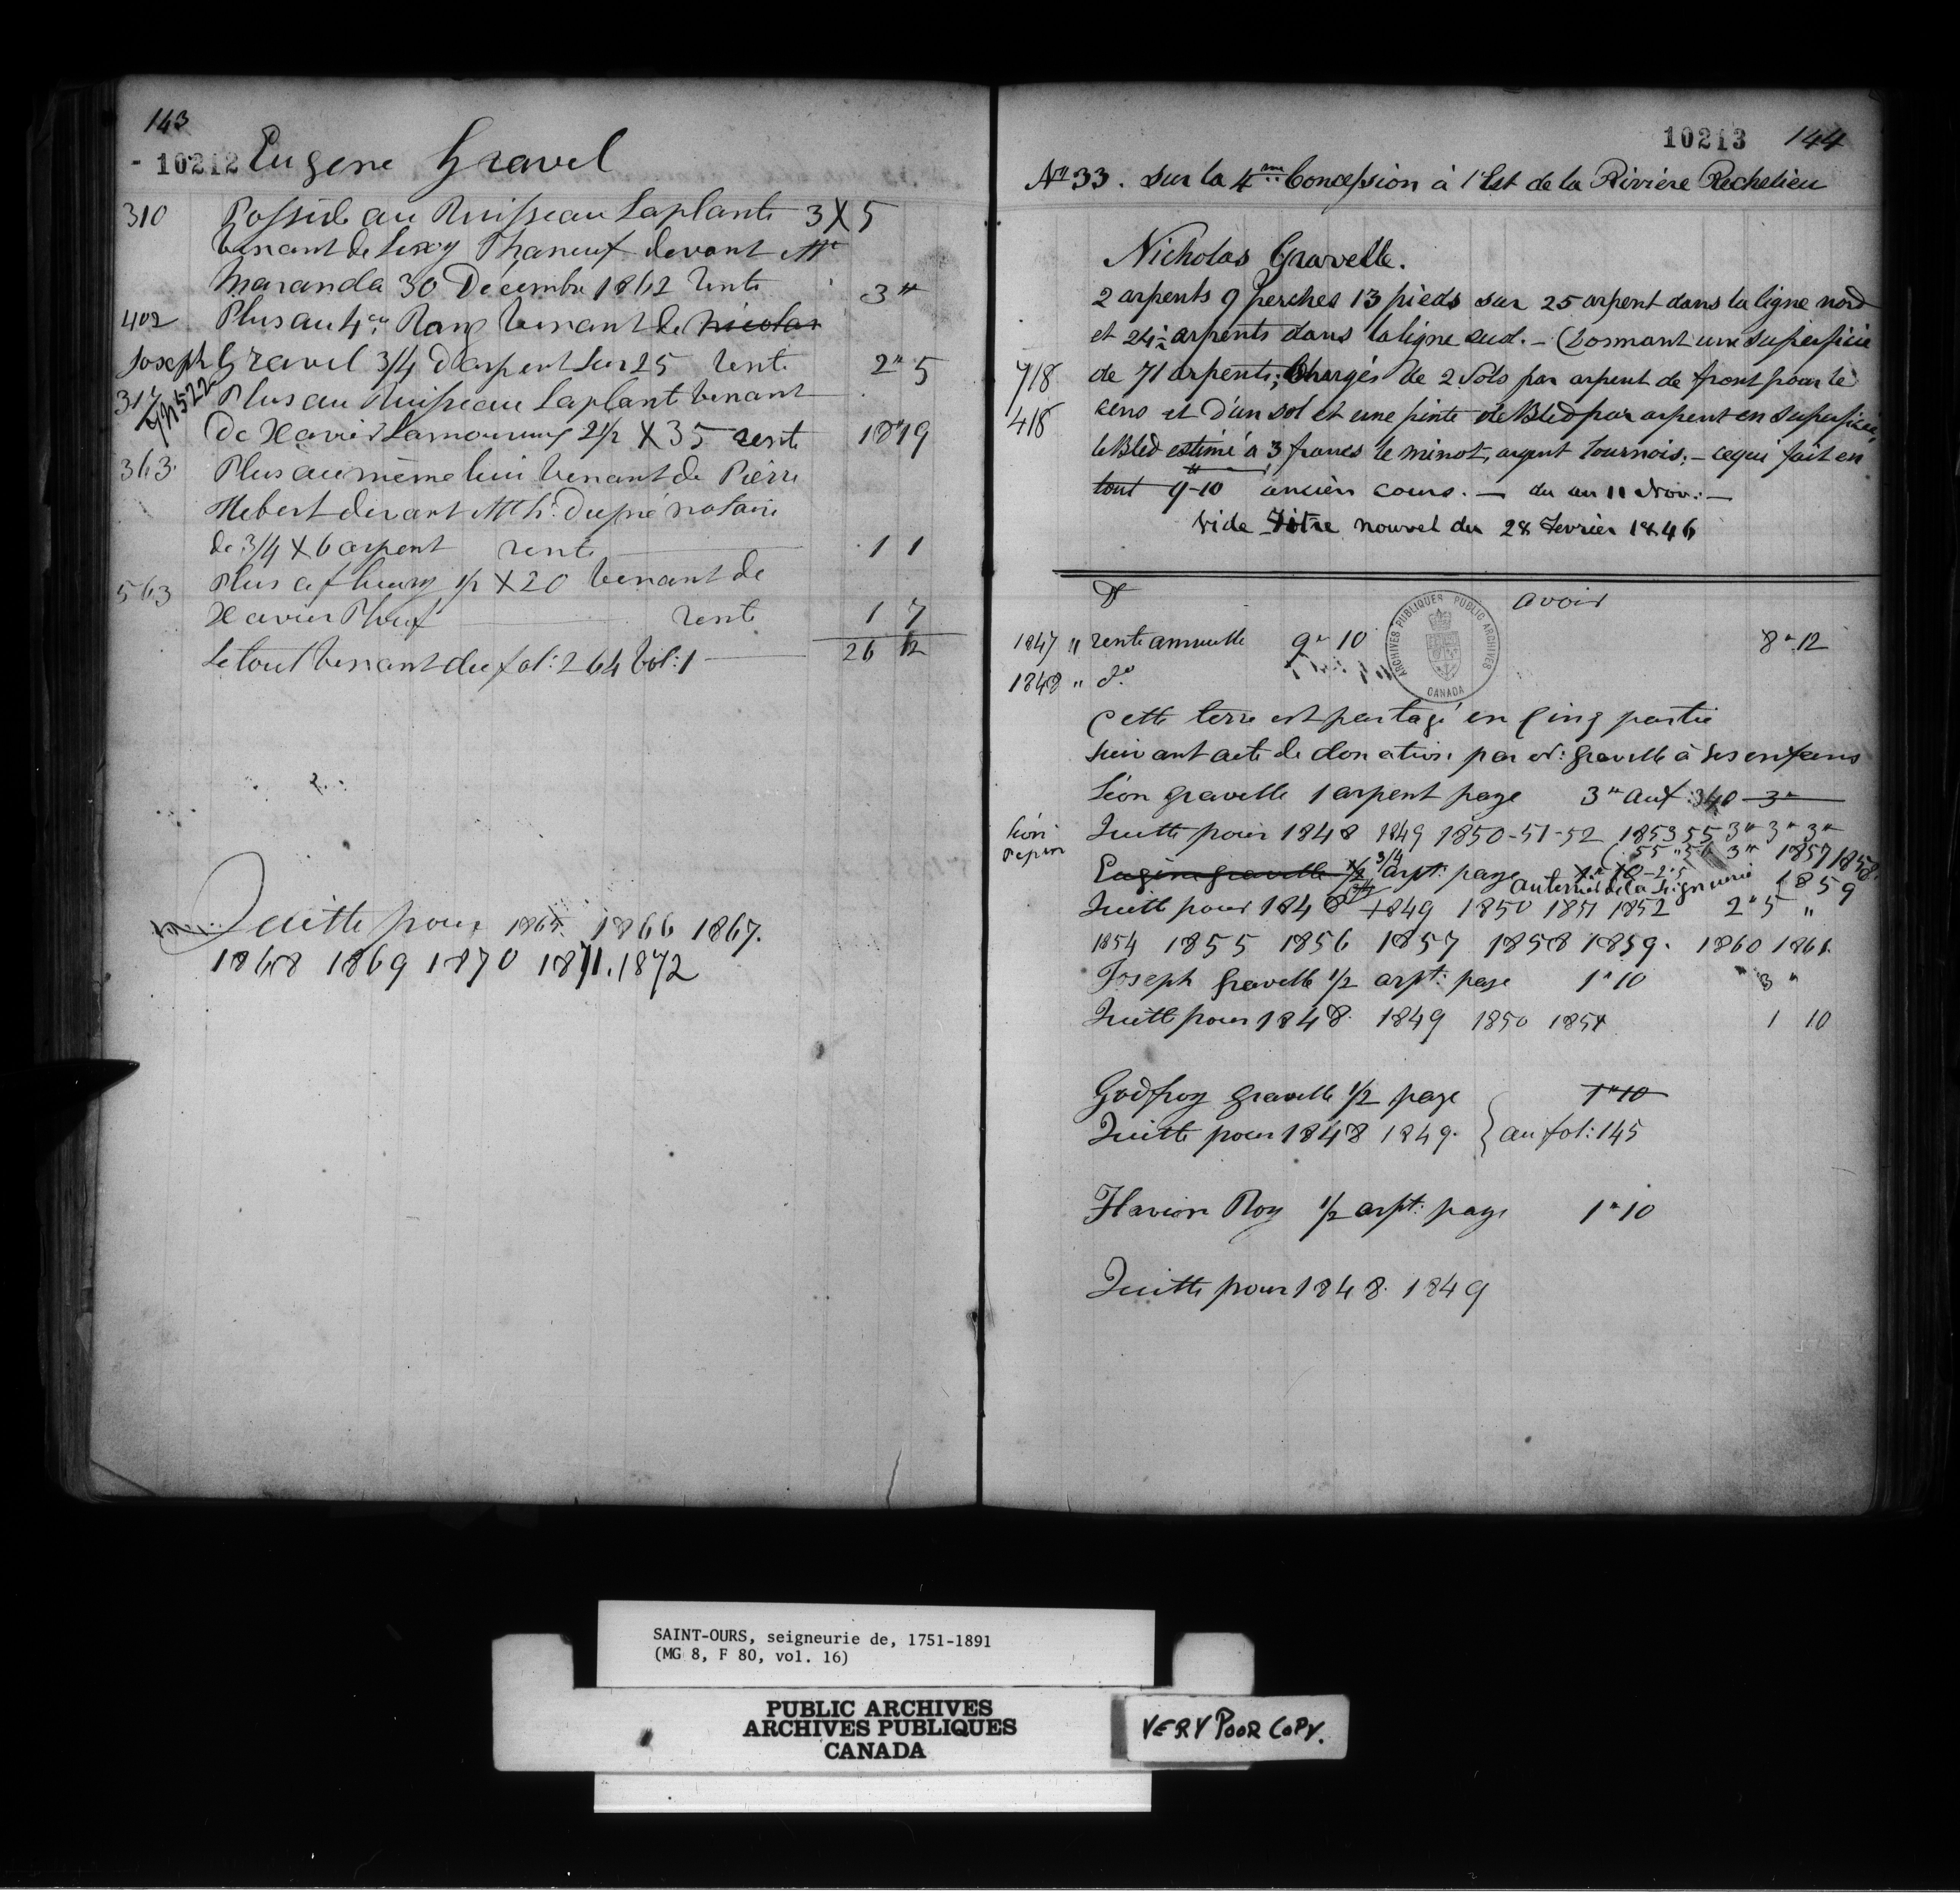 143
- 10212 Eugene Gravel
310 Possède au Ruisseau Laplante 3 X 5
venant de Leroy Phaneuf devant Mtre
Maranda 30 Décembre 1862 rente 3"
402 Plus au 4em Rang venant de Nicolas
Joseph Gravel 3/4 d'arpent sur 25 rente 2" 5
Plus au Ruisseau Laplant venant
522
De Xavier Lamoureux 2 1/2 X 35 rente 18"19
363 Plus au même lieu venant de Pierre
Hebert devant Mtre Dupré notaire
de 3/4 X 6 arpent rente 1 1
563 Plus 1/2 X 20 venant de
Xavier rente 1 7
Le tout venant du fol: 264 Vol: 1 26 12
Quitte pour 1865 1866 1867.
1868 1869 1870 1871. 1872
10213 144
No 33. sur la 4me Concession à l'Est de la Rivière Richelieu
Nicholas Gravelle.
2 arpents 9 perches 13 pieds sur 25 arpent dans la ligne nord
et 24 1/2 arpents dans la ligne sud. - (Formant une superficie
718 de 71 arpents; Chargés de 2 Sols par arpent de front pour le
418 cens et d'un sol et une pinte de Bled par arpent en superficie,
le Bled estimé à 3 francs le minot, argent tournois; - ce qui fait en
tout 9"-10 ancien cours. — du au 11 Nov. —
vide Titre nouvel du 28 Fevrier 1846
Dt avoir
1847 " rente annuelle 9" 10 8" 12
1848 " do
ARCHIVES PUBLIQUES PUBLIC ARCHIVES
CANADA
Cette terre est partagé en Cinq partie
suivant acte de donation par N: gravelle à ses enfans
Léon gravelle 1 arpent paye 3" au f: 340 3"
Léon
Pepin
Quitte pour 1848 1849 1850-51-52 1853 55 3" 3" 3"
55 " 56 3" 1857 1858.
Eugène gravelle 1/2 3/4 arpt: paye 1" 10 - 2"5 1859
au terrier de la Seigneurie
Quitt pour 1848 1849 1850 1851 1852 2" 5 "
1854 1855 1856 1857 1858 1859. 1860 1861.
Joseph gravelle 1/2 arpt: paye 1"10 3 "
Quitt pour 1848. 1849 1850 1851 1 10
Godfroy gravelle 1/2 paye 1"10
Quitte pour 1848 1849. } au fol: 145
Flavien Roy 1/2 arpt: paye 1"10
Quitte pour 1848. 1849
SAINT-OURS, seigneurie de, 1751-1891
(MG 8, F 80, vol. 16)
PUBLIC ARCHIVES
ARCHIVES PUBLIQUES
CANADA
VERY POOR COPY.